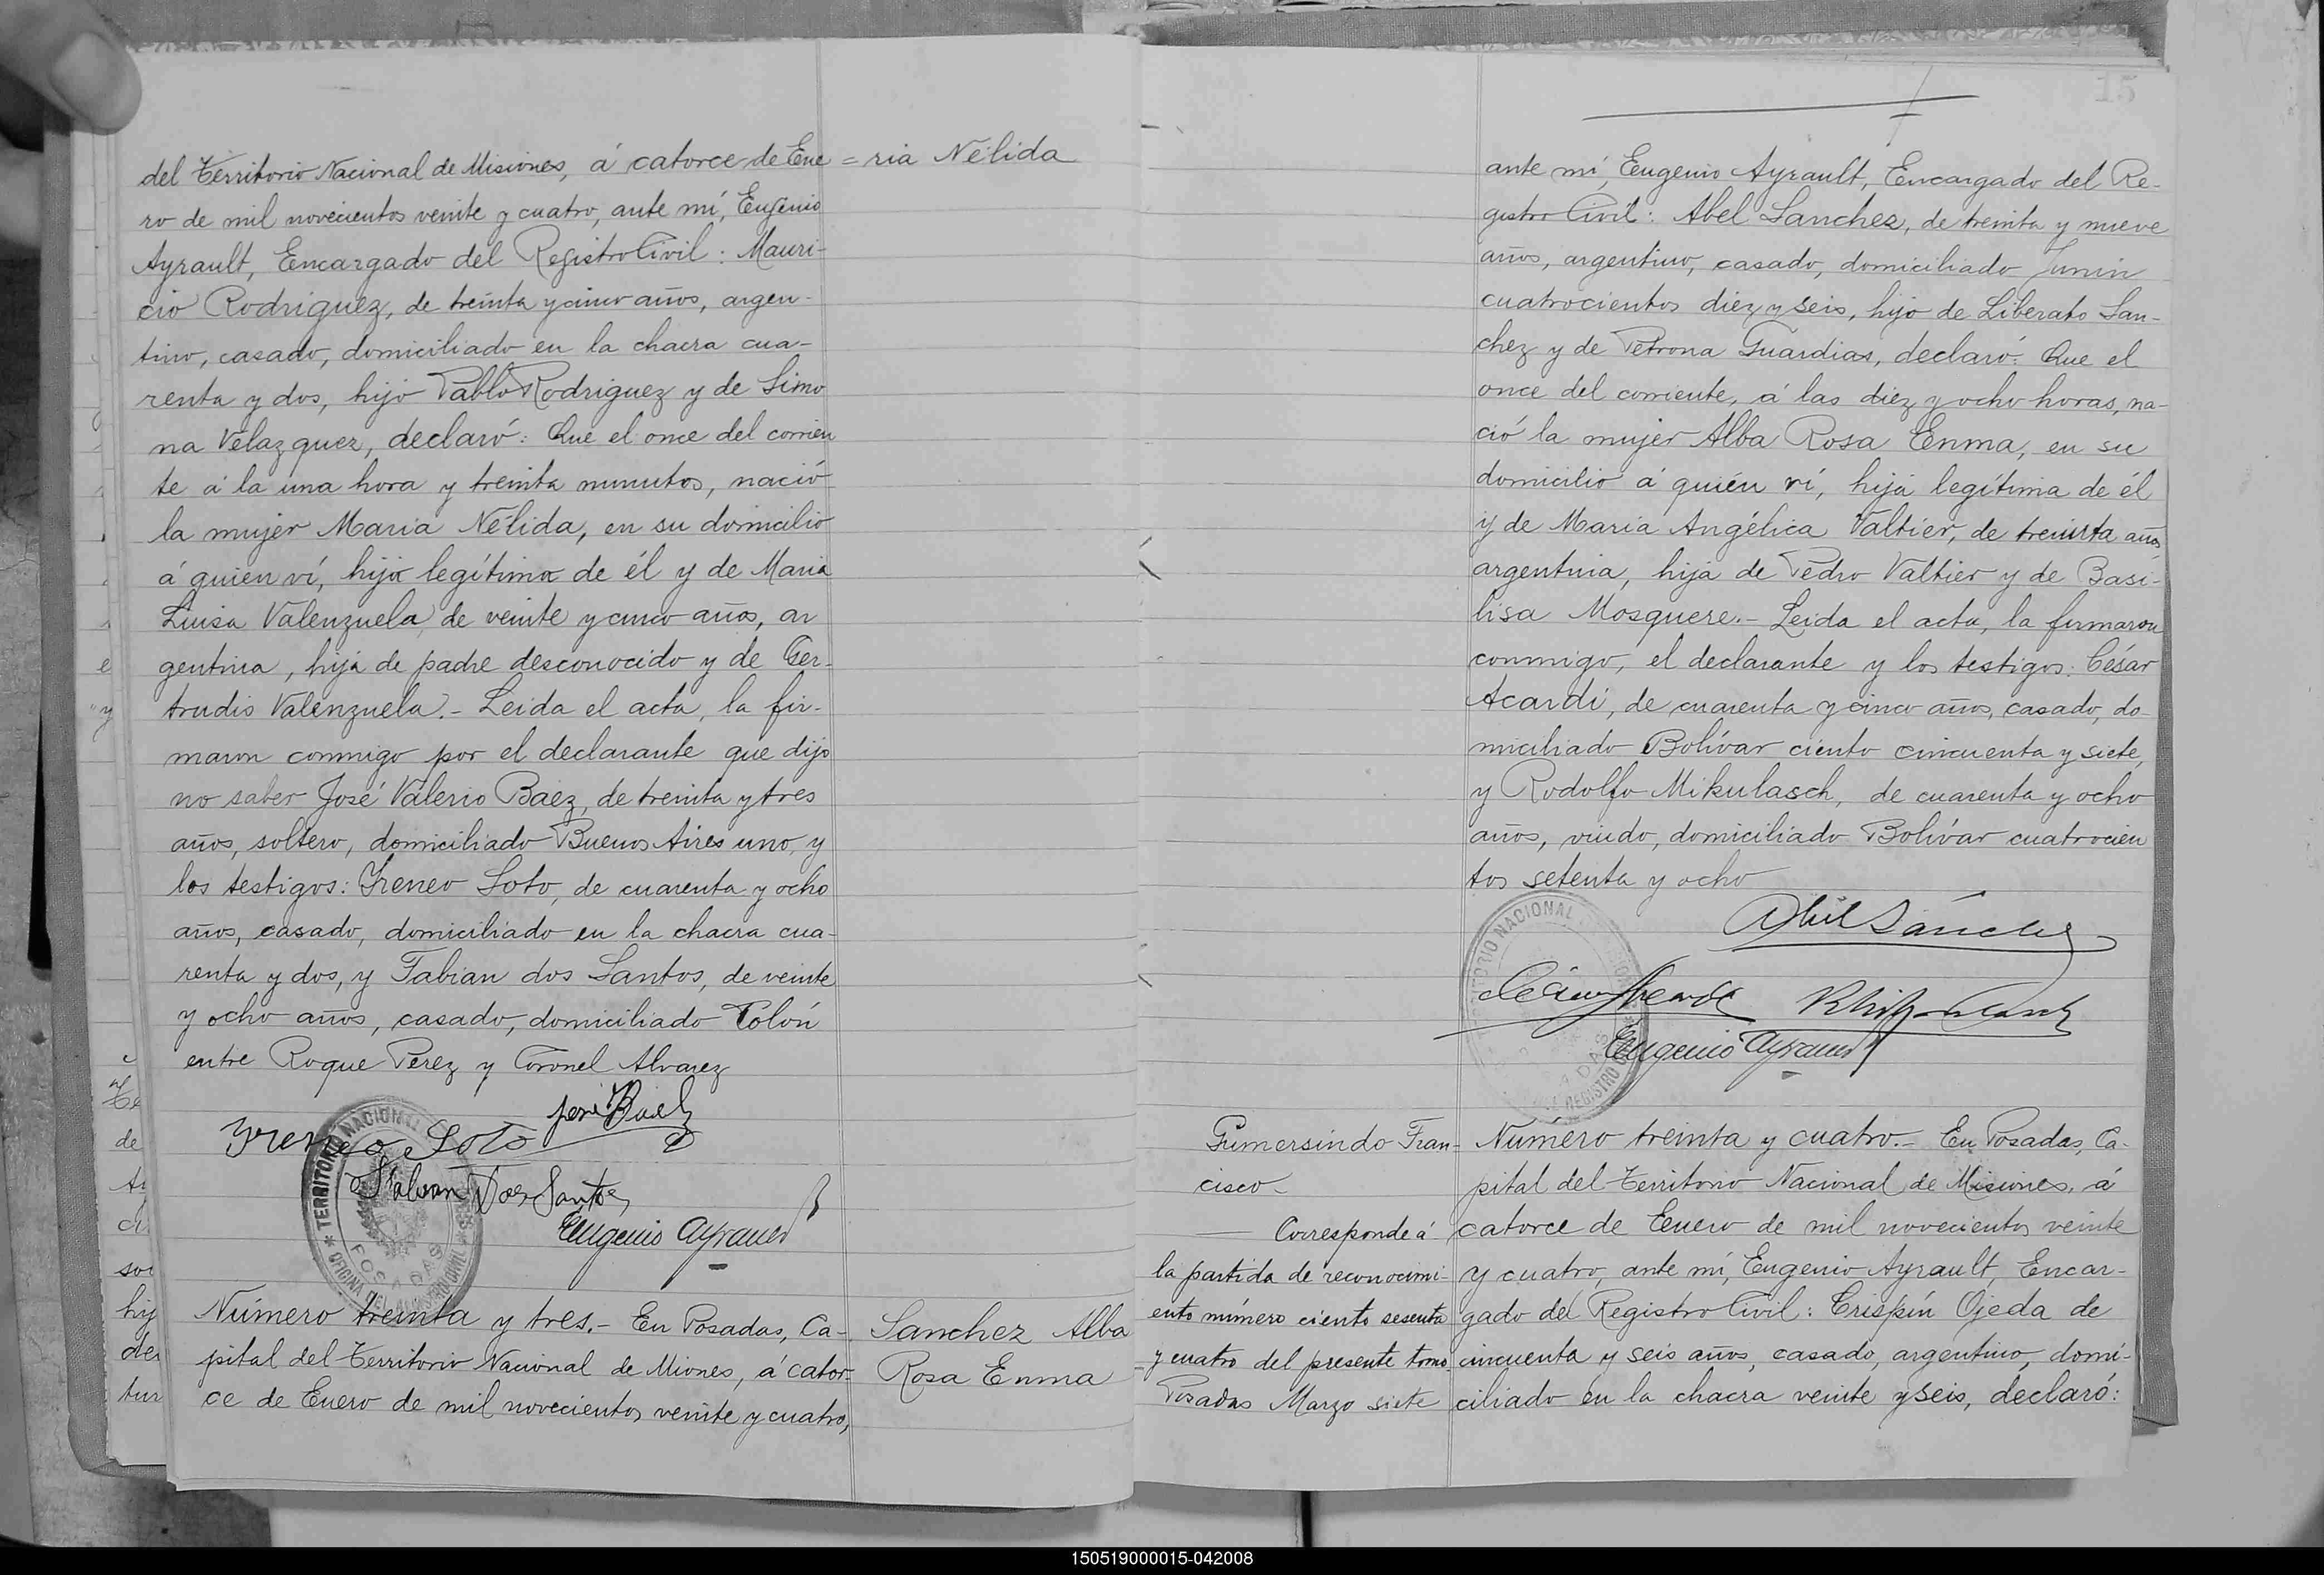 del Territorio Nacional de Misiones, á catorce de Ene = ria Nélida
ro de mil novecientos veinte y cuatro, ante mí, Eugenio
Ayrault, Encargado del Registro Civil: Mauri-
cio Rodriguez, de treinta y cinco años, argen-
tino, casado, domiciliado en la chacra cua-
renta y dos, hijo Pablo Rodriguez y de Simo
na Velazquez, declaró: Que el once del corrien
te á la una hora y treinta minutos, nació
la mujer Maria Nélida, en su domicilio
á quien ví, hija legítima de él y de Maria
Luisa Valenzuela de veinte y cinco años, ar
gentina, hija de padre desconocido y de Ger-
trudis Valenzuela.- Leida el acta, la fir-
maron conmigo por el declarante que dijo
no saber José Valerio Baez, de treinta y tres
años, soltero, domiciliado Buenos Aires uno, y
los testigos: Yreneo Soto, de cuarenta y ocho
años, casado, domiciliado en la chacra cua-
renta y dos, y Fabian dos Santos, de veinte
y ocho años, casado, domiciliado Colón
entre Roque Perez y Coronel Alvarez
José Baez
Yreneo Soto
Fabian Dos Santos
Eugenio Ayrault
TERRITORIO NACIONAL
POSADAS
OFICINA DEL REGISTRO CIVIL
Número treinta y tres.- En Posadas, Ca-
pital del Territorio Nacional de Miones, á cator-
ce de Enero de mil novecientos veinte y cuatro,
Sanchez Alba
Rosa Enma
15
ante mí, Eugenio Ayrault, Encargado del Re-
gistro Civil: Abel Sanchez, de treinta y nueve
años, argentino, casado, domiciliado Junin
cuatrocientos diez y seis, hijo de Liberato San-
chez y de Petrona Guardias, declaró: Que el
once del corriente, á las diez y ocho horas, na-
ció la mujer Alba Rosa Enma, en su
domicilio á quién ví, hija legítima de él
y de Maria Angélica Valtier, de treinta años
argentina, hija de Pedro Valtier y de Basi-
lisa Mosquere.- Leida el acta, la firmaron
conmigo, el declarante y los testigos: César
Acardi, de cuarenta y cinco años, casado, do-
miciliado Bolívar ciento cincuenta y siete,
y Rodolfo Mikulasch, de cuarenta y ocho
años, viudo, domiciliado Bolívar cuatrocien
tos setenta y ocho
Abel Sánchez
Eugenio Ayrault
TERRITORIO NACIONAL
REGISTRO
Gumersindo Fran-
cisco
Corresponde á
la partida de reconocimi-
ento número ciento sesenta
y cuatro del presente tomo.
Posadas Marzo siete
Número treinta y cuatro.- En Posadas, Ca-
pital del Territorio Nacional de Misiones, á
catorce de Enero de mil novecientos veinte
y cuatro, ante mí, Eugenio Ayrault, Encar-
gado del Registro Civil: Crispín Ojeda de
cincuenta y seis años, casado, argentino, domi-
ciliado en la chacra veinte y seis, declaró:
150519000015-042008